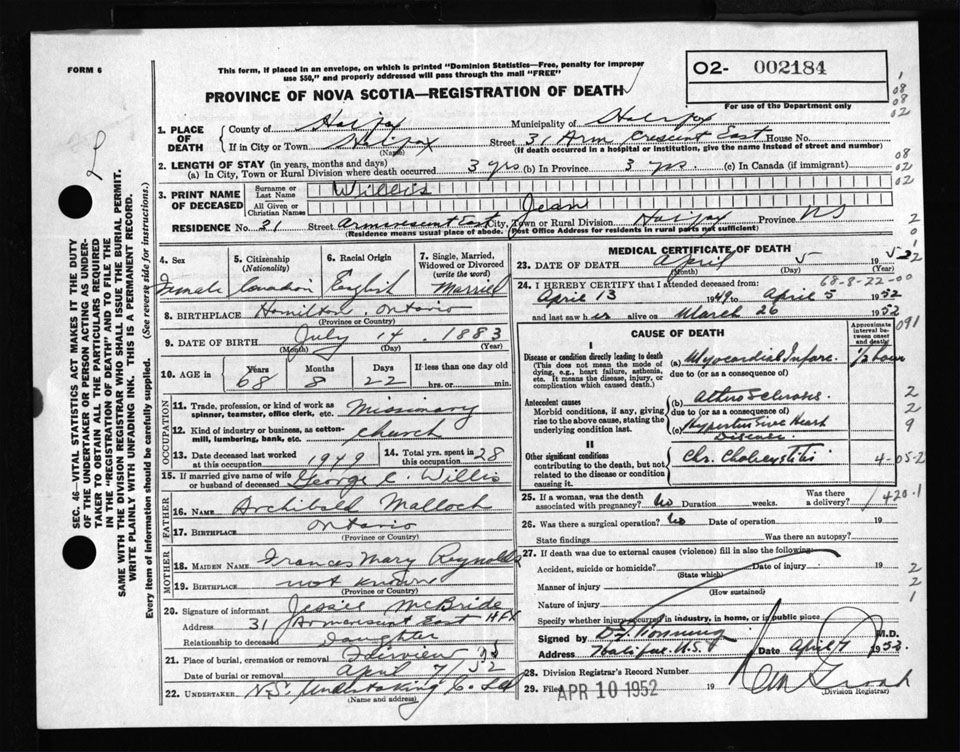 FORM 6
This form, if placed in an envelope, on which is printed "Dominion Statistics—Free, penalty for improper
use $50," and properly addressed will pass through the mail "FREE"
PROVINCE OF NOVA SCOTIA—REGISTRATION OF DEATH
O2- 002184
For use of the Department only
1. PLACE OF DEATH
County of Halifax Municipality of Halifax
If in City or Town Halifax (Name) Street 31 Arm Crescent East House No.
(If death occurred in a hospital or institution, give the name instead of street and number)
2. LENGTH OF STAY (in years, months and days)
(a) In City, Town or Rural Division where death occurred 3 yrs (b) In Province 3 yrs. (c) In Canada (if immigrant)
3. PRINT NAME OF DECEASED
Surname or Last Name Willis
All Given or Christian Names Jean
RESIDENCE No. 31 Street Armcrescent East City, Town or Rural Division Halifax Province NS
(Residence means usual place of abode. Post Office Address for residents in rural parts not sufficient)
4. Sex Female
5. Citizenship (Nationality) Canadian
6. Racial Origin English
7. Single, Married, Widowed or Divorced (write the word) Married
8. BIRTHPLACE Hamilton, Ontario
(Province or Country)
9. DATE OF BIRTH July 14 1883
(Month) (Day) (Year)
10. AGE in Years 68 Months 8 Days 22 If less than one day hrs. or min.
OCCUPATION
11. Trade, profession, or kind of work as spinner, teamster, office clerk, etc. Missionary
12. Kind of industry or business, as cotton-mill, lumbering, bank, etc. Church
13. Date deceased last worked at this occupation 1949
14. Total yrs. spent in this occupation 28
15. If married give name of wife or husband of deceased George C. Willis
FATHER
16. NAME Archibald Malloch
17. BIRTHPLACE Ontario
(Province or Country)
MOTHER
18. MAIDEN NAME Frances Mary Reynolds
19. BIRTHPLACE not known
(Province or Country)
20. Signature of informant Jessie McBride
Address 31 Armcrescent East HFX
Relationship to deceased Daughter
21. Place of burial, cremation or removal Fairview
Date of burial or removal April 7/52
22. UNDERTAKER N.S. Undertaking Co. Ltd
(Name and address)
MEDICAL CERTIFICATE OF DEATH
23. DATE OF DEATH April 5 1952
(Month) (Day) (Year)
68-8-22-00
24. I HEREBY CERTIFY that I attended deceased from:
April 13 1949 to April 5 1952
and last saw her alive on March 26 1952
CAUSE OF DEATH
Approximate interval between onset and death
I
Disease or condition directly leading to death
(This does not mean the mode of dying, e.g., heart failure, asthenia, etc. It means the disease, injury, or complication which caused death.)
(a) Myocardial Infarc. 1/2 hour
due to (or as a consequence of)
Antecedent causes
Morbid conditions, if any, giving rise to the above cause, stating the underlying condition last.
(b)
due to (or as a consequence of)
(c) Hypertensive Heart Disease
II
Other significant conditions
contributing to the death, but not related to the disease or condition causing it.
Chr. Cholecystitis
4-05-2
25. If a woman, was the death associated with pregnancy? No Duration weeks. Was there a delivery?
420.1
26. Was there a surgical operation? No Date of operation 19
State findings Was there an autopsy?
27. If death was due to external causes (violence) fill in also the following:
Accident, suicide or homicide? Date of injury 19
(State which)
Manner of injury
(How sustained)
Nature of injury
Specify whether injury occurred in industry, in home, or in public place
Signed by M.D.
Address Halifax Date April 7 1952
28. Division Registrar's Record Number
29. Filed APR 10 1952 19
(Division Registrar)
SEC. 46—VITAL STATISTICS ACT MAKES IT THE DUTY
OF THE UNDERTAKER OR PERSON ACTING AS UNDER-
TAKER TO OBTAIN ALL THE PARTICULARS REQUIRED
IN THE "REGISTRATION OF DEATH" AND TO FILE THE
SAME WITH THE DIVISION REGISTRAR WHO SHALL ISSUE THE BURIAL PERMIT.
WRITE PLAINLY WITH UNFADING INK. THIS IS A PERMANENT RECORD.
Every item of information should be carefully supplied. (See reverse side for instructions.)